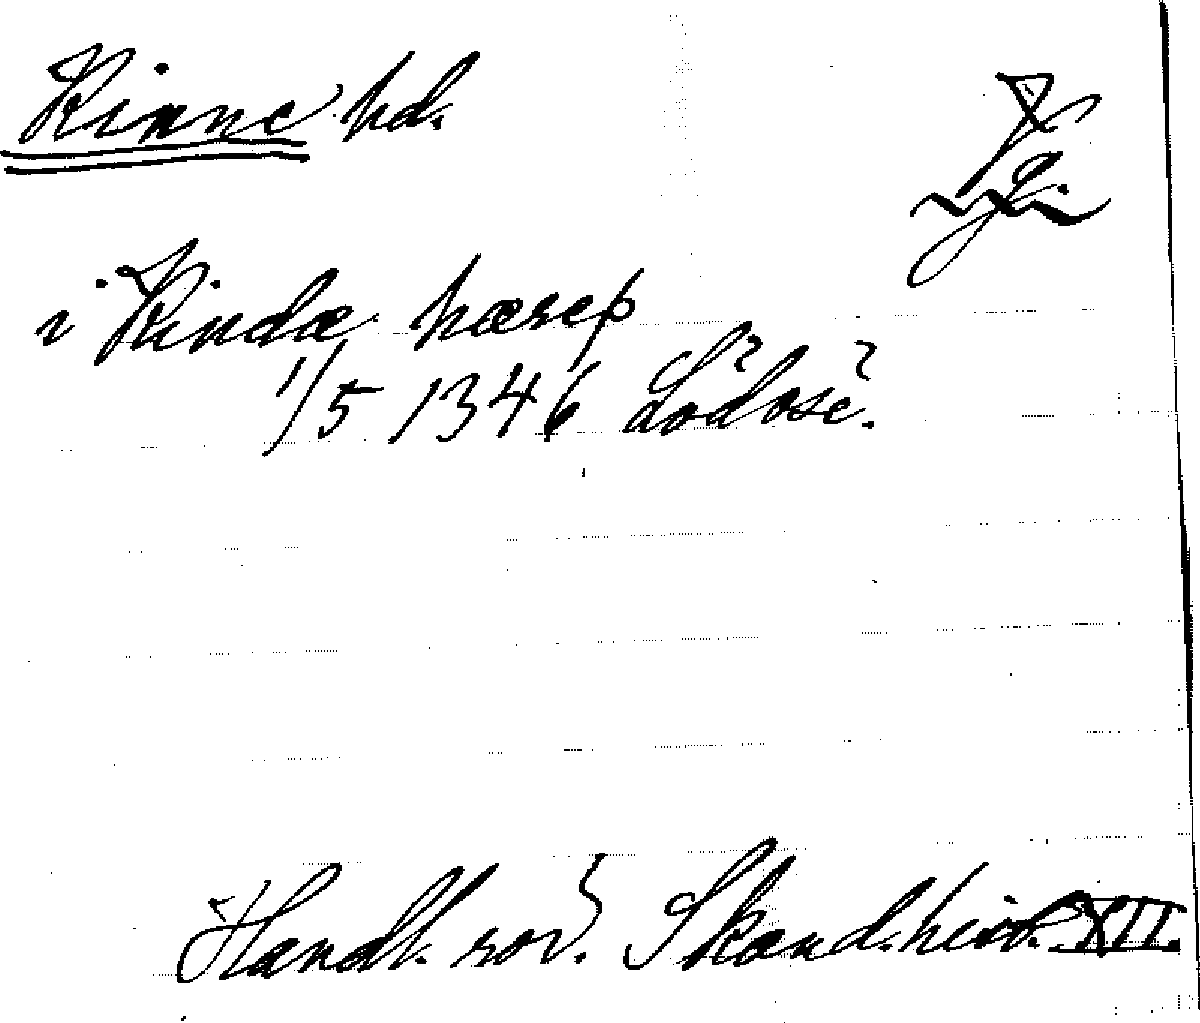 Kinne hd.
Vg.
i Kindæ hæreþ
1/5 1346 Lödöse.
Handl. rör. Skand. hist. XII.